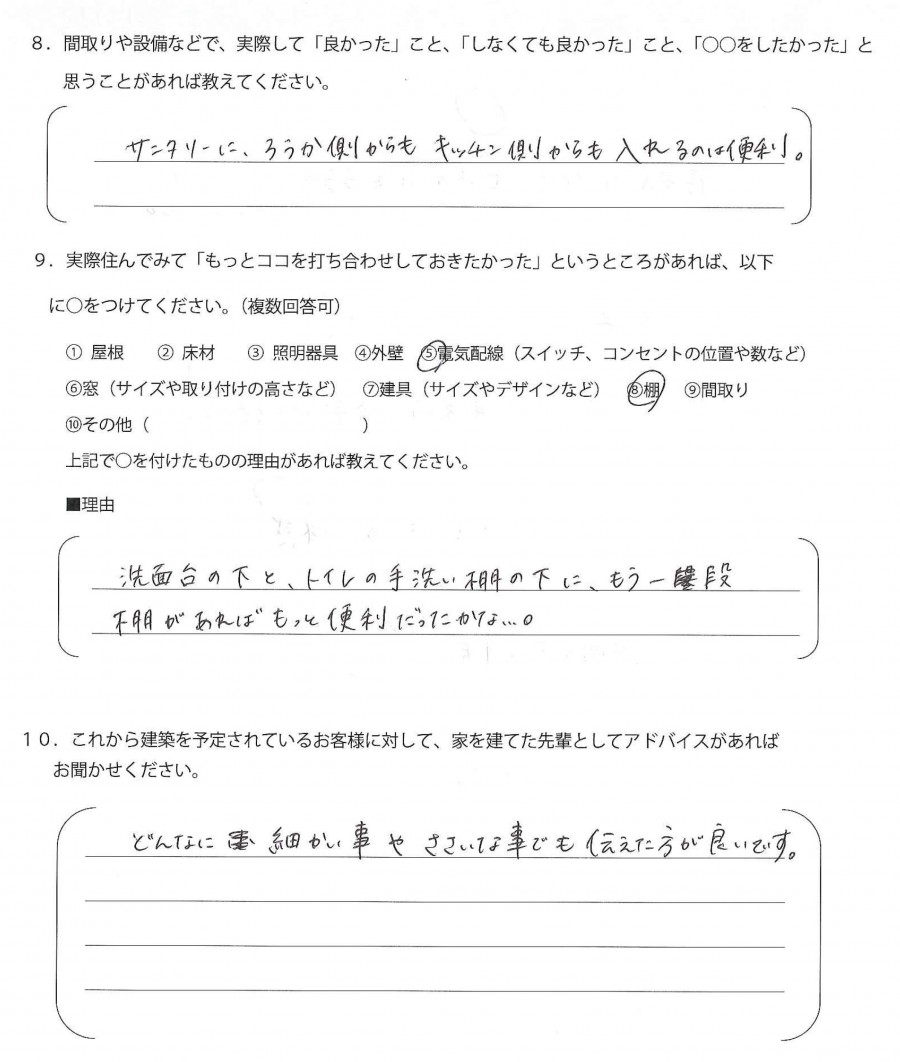 ８．間取りや設備などで、実際して「良かった」こと、「しなくても良かった」こと、「○○をしたかった」と
思うことがあれば教えてください。
サニタリーに、ろうか側からも キッチン側からも 入れるのは便利。
９．実際住んでみて「もっとココを打ち合わせしておきたかった」というところがあれば、以下
に○をつけてください。（複数回答可）
① 屋根 ② 床材 ③ 照明器具 ④外壁 ⑤電気配線（スイッチ、コンセントの位置や数など）
⑥窓（サイズや取り付けの高さなど） ⑦建具（サイズやデザインなど） ⑧棚 ⑨間取り
⑩その他（ ）
上記で○を付けたものの理由があれば教えてください。
■理由
洗面台の下と、トイレの手洗い棚の下に、もう一段
棚があればもっと便利だったかな…。
１０．これから建築を予定されているお客様に対して、家を建てた先輩としてアドバイスがあれば
お聞かせください。
どんなに細かい事や ささいな事でも 伝えた方が良いです。